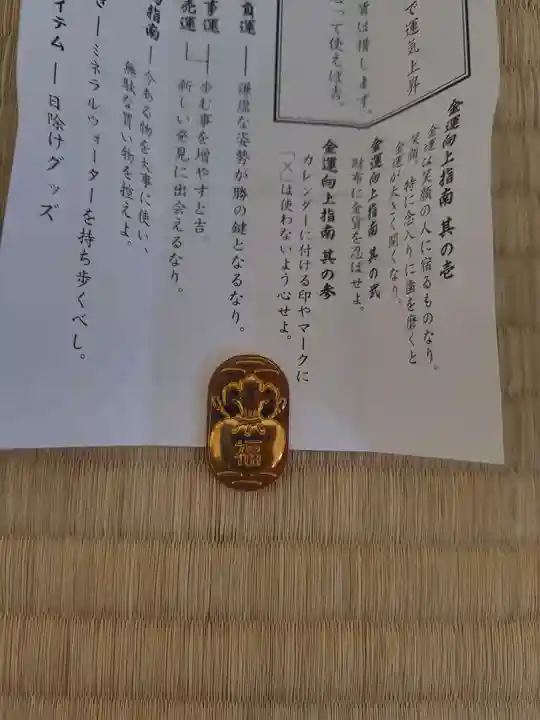 で運気上昇
は惜します。
って使えば吉。
金運向上指南 其の壱
金運は笑顔の人に宿るものなり。
笑顔、特に念入りに歯を磨くと
金運が大きく開くなり。
金運向上指南 其の弐
財布に金貨を忍ばせよ。
金運向上指南 其の参
カレンダーに付ける印やマークに
「×」は使わないよう心せよ。
負運 ― 謙虚な姿勢が勝の鍵となるなり。
事運 ― 歩む事を増やすと吉。
売運 新しい発見に出会えるなり。
指南 ― 今ある物を大事に使い、
無駄な買い物を控えよ。
き ― ミネラルウォーターを持ち歩くべし。
イテム ― 日除けグッズ
福